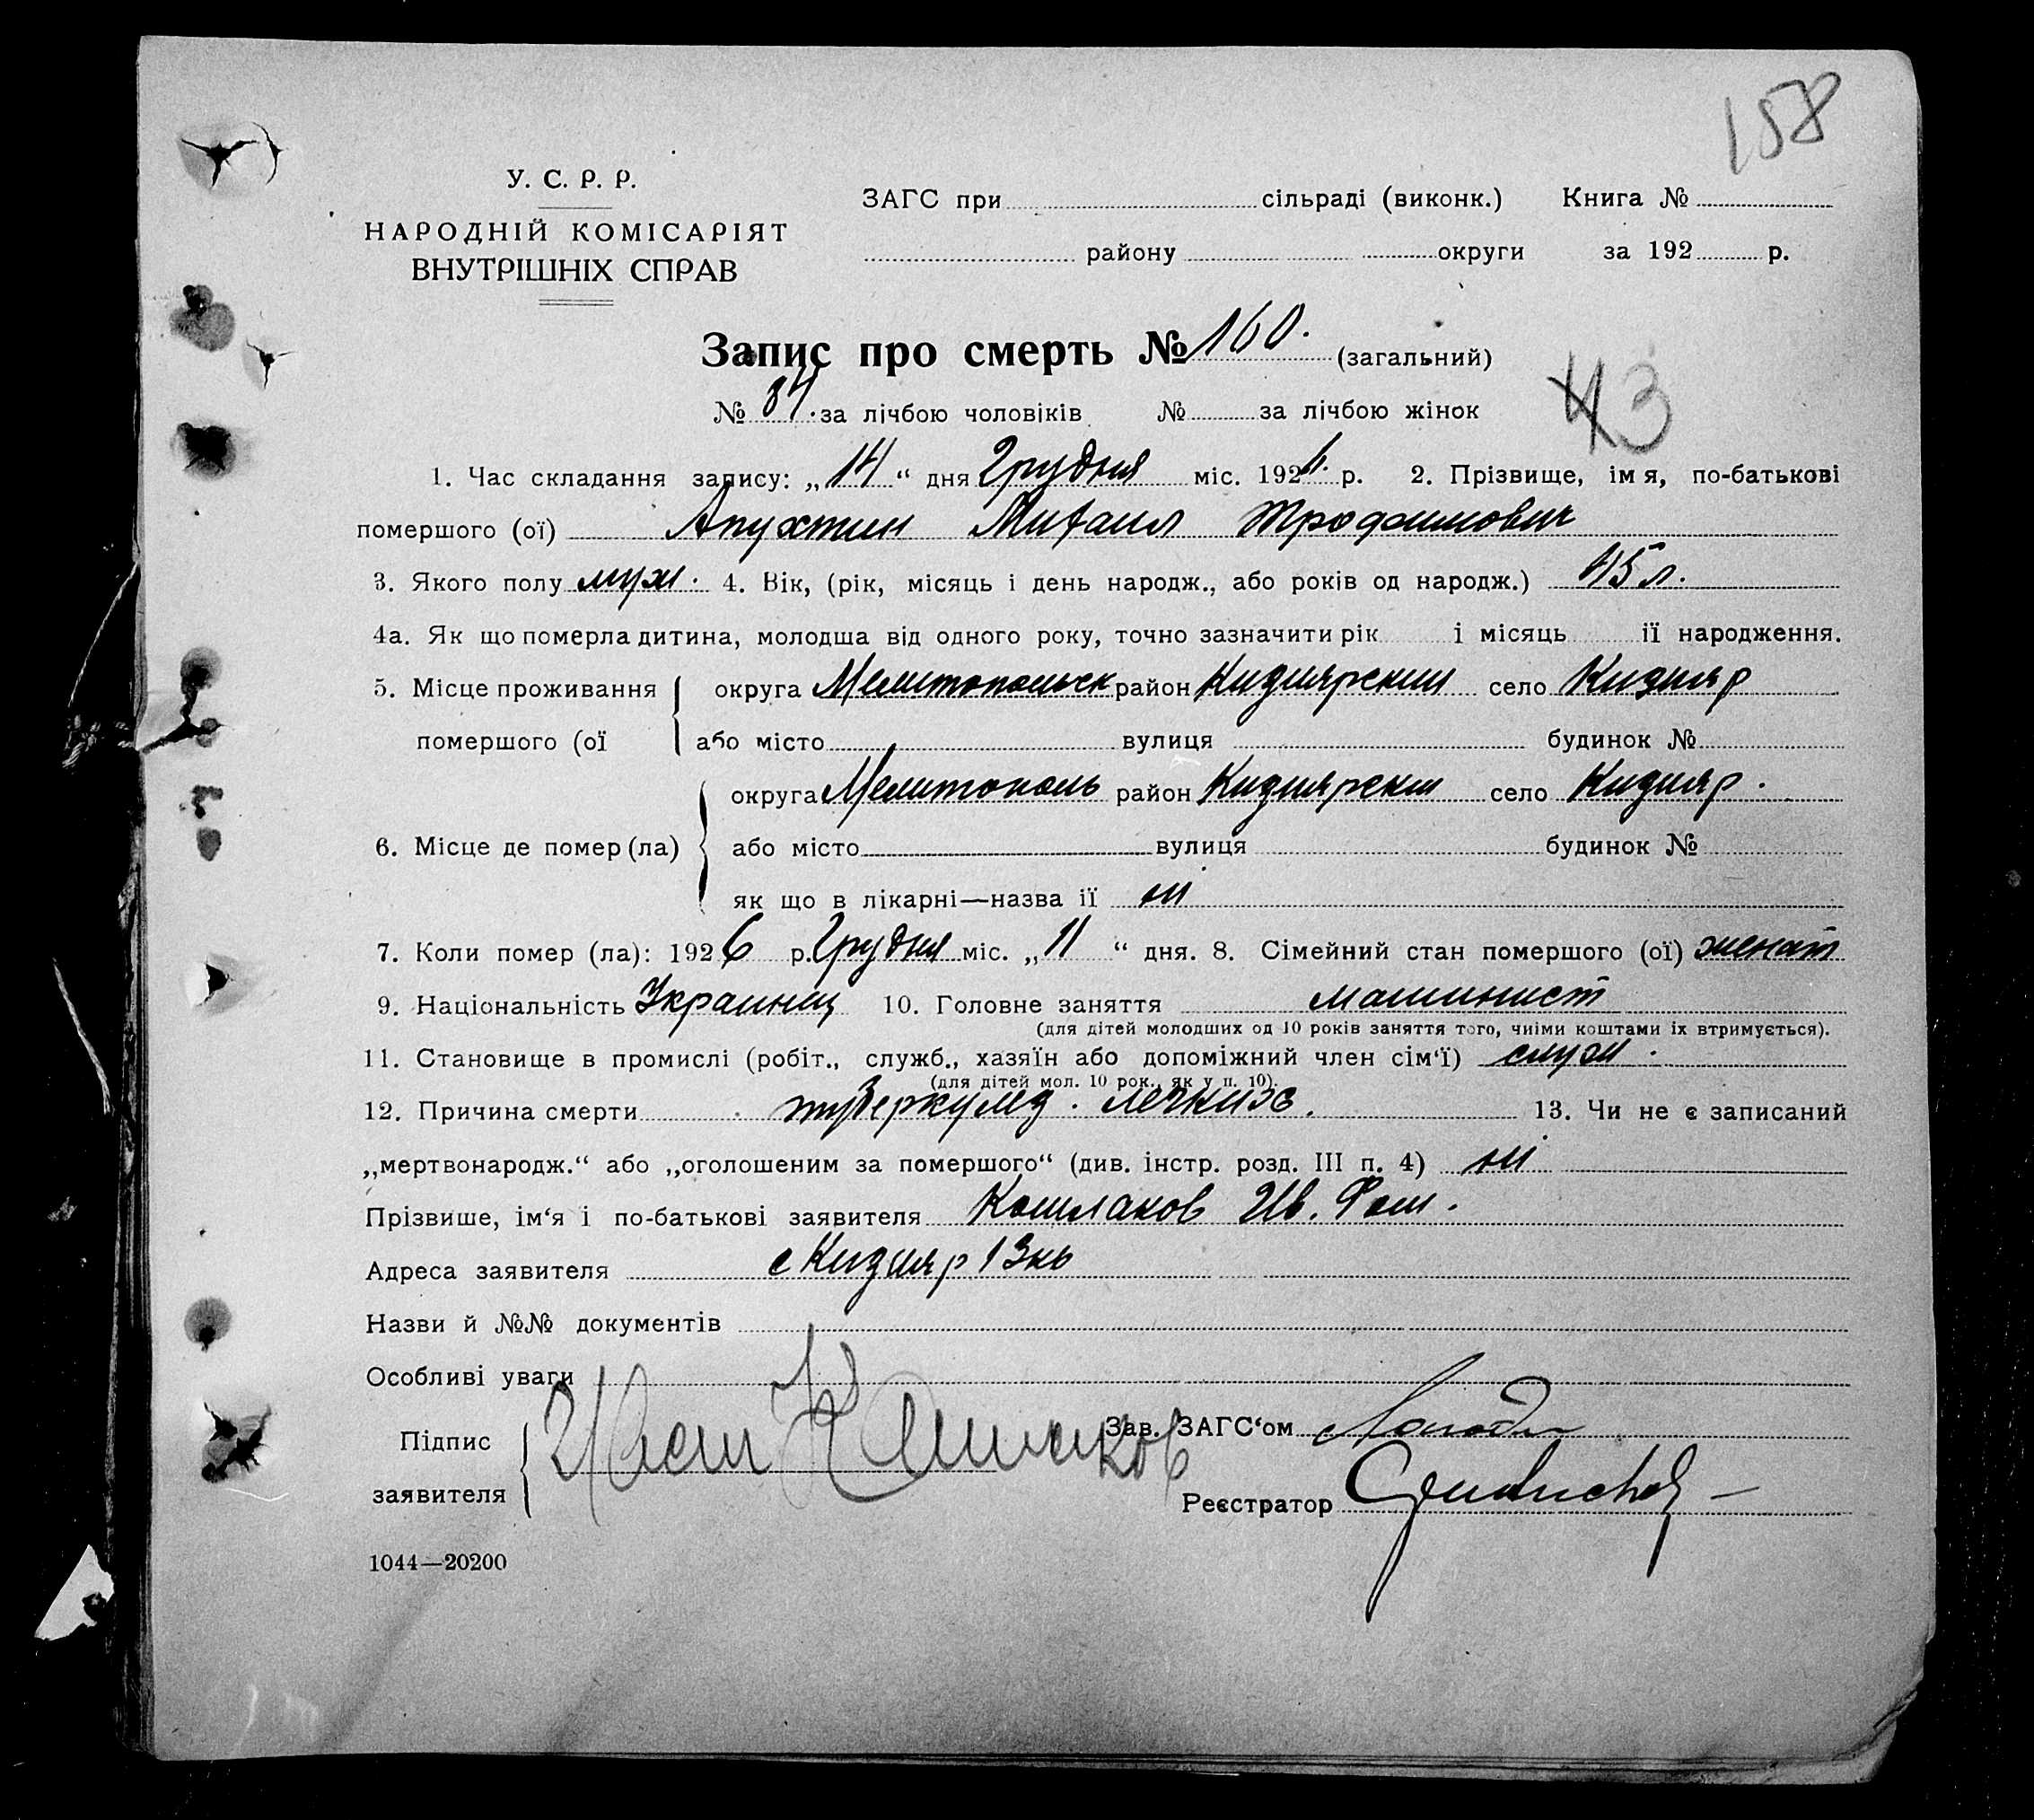 158
У. С. Р. Р.
НАРОДНІЙ КОМІСАРІЯТ
ВНУТРІШНІХ СПРАВ
ЗАГС при сільраді (виконк.) Книга №
району округи за 192 р.
Запис про смерть № 160. (загальний)
№ 84. за лічбою чоловіків № за лічбою жінок
43
1. Час складання запису: „14“ дня Грудня міс. 1926 р. 2. Прізвище, імя, по-батькові
помершого (ої) Апухтин Михаил Трофимович
3. Якого полу муж. 4. Вік, (рік, місяць і день народж., або років од народж.) 45 л.
4а. Як що померла дитина, молодша від одного року, точно зазначити рік і місяць її народження.
5. Місце проживання округа Мелитопольск район Кизиярский село Кизияр
помершого (ої або місто вулиця будинок №
округа Мелитополь район Кизиярский село Кизияр.
6. Місце де помер (ла) або місто вулиця будинок №
як що в лікарні—назва її ні
7. Коли помер (ла): 1926 р. Грудня міс. „11“ дня. 8. Сімейний стан помершого (ої) женат
9. Національність Украинец 10. Головне заняття машинист
(для дітей молодших од 10 років заняття того, чиїми коштами їх втримується).
11. Становище в промислі (робіт., служб., хазяїн або допоміжний член сім‘ї) служ.
(для дітей мол. 10 рок., як у п. 10).
12. Причина смерти туберкулез. 13. Чи не є записаний
„мертвонародж.“ або „оголошеним за помершого“ (див. інстр. розд. III п. 4) ні
Прізвише, ім‘я і по-батькові заявителя Кошлаков Ив. Фом.
Адреса заявителя с Кизияр
Назви й №№ документів
Особливі уваги
Підпис
заявителя
Зав. ЗАГС‘ом
Реєстратор
1044—20200